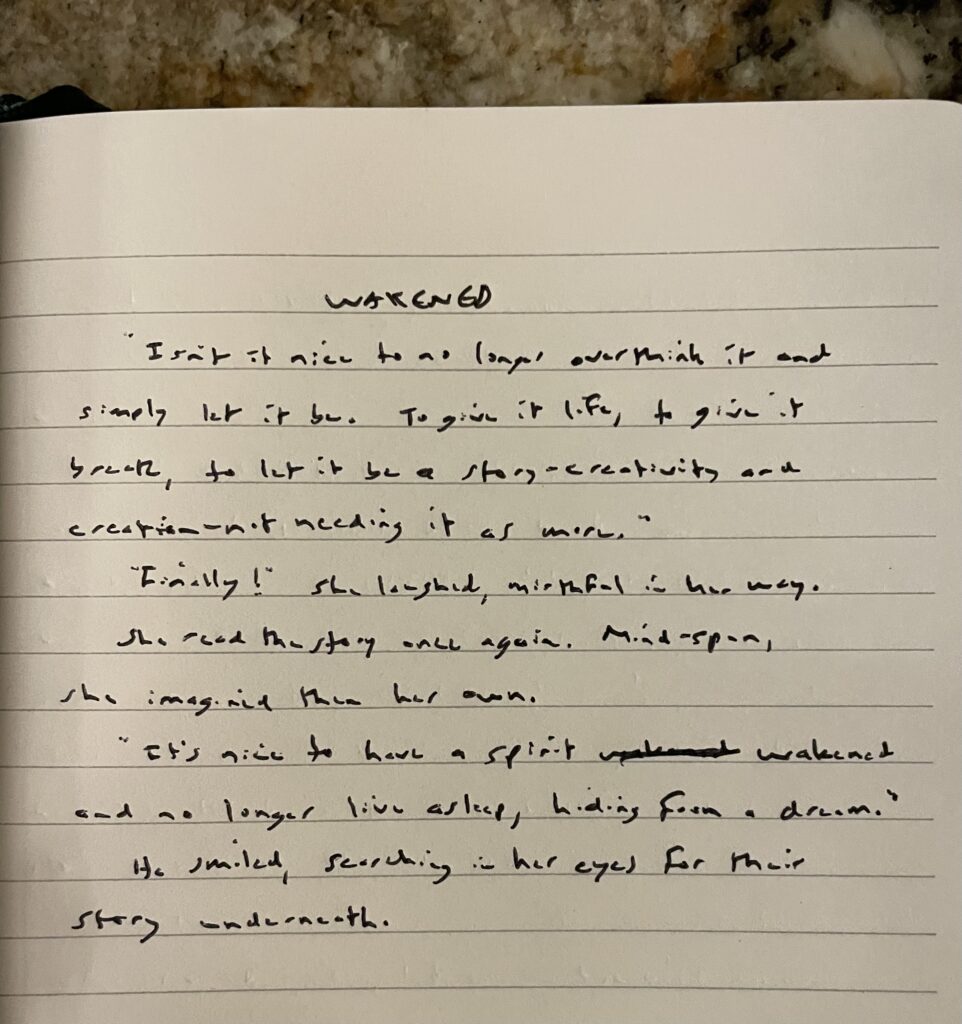 WAKENED
"Isn't it nice to no longer overthink it and
simply let it be. To give it life, to give it
breath, to let it be a story-creativity and
creation-not needing it as more."
"Finally!" She laughed, mirthful in her way.
She read the story once again. Mind-spun,
she imagined then her own.
"It's nice to have a spirit wakened
and no longer live asleep, hiding from a dream."
He smiled, searching in her eyes for their
story underneath.